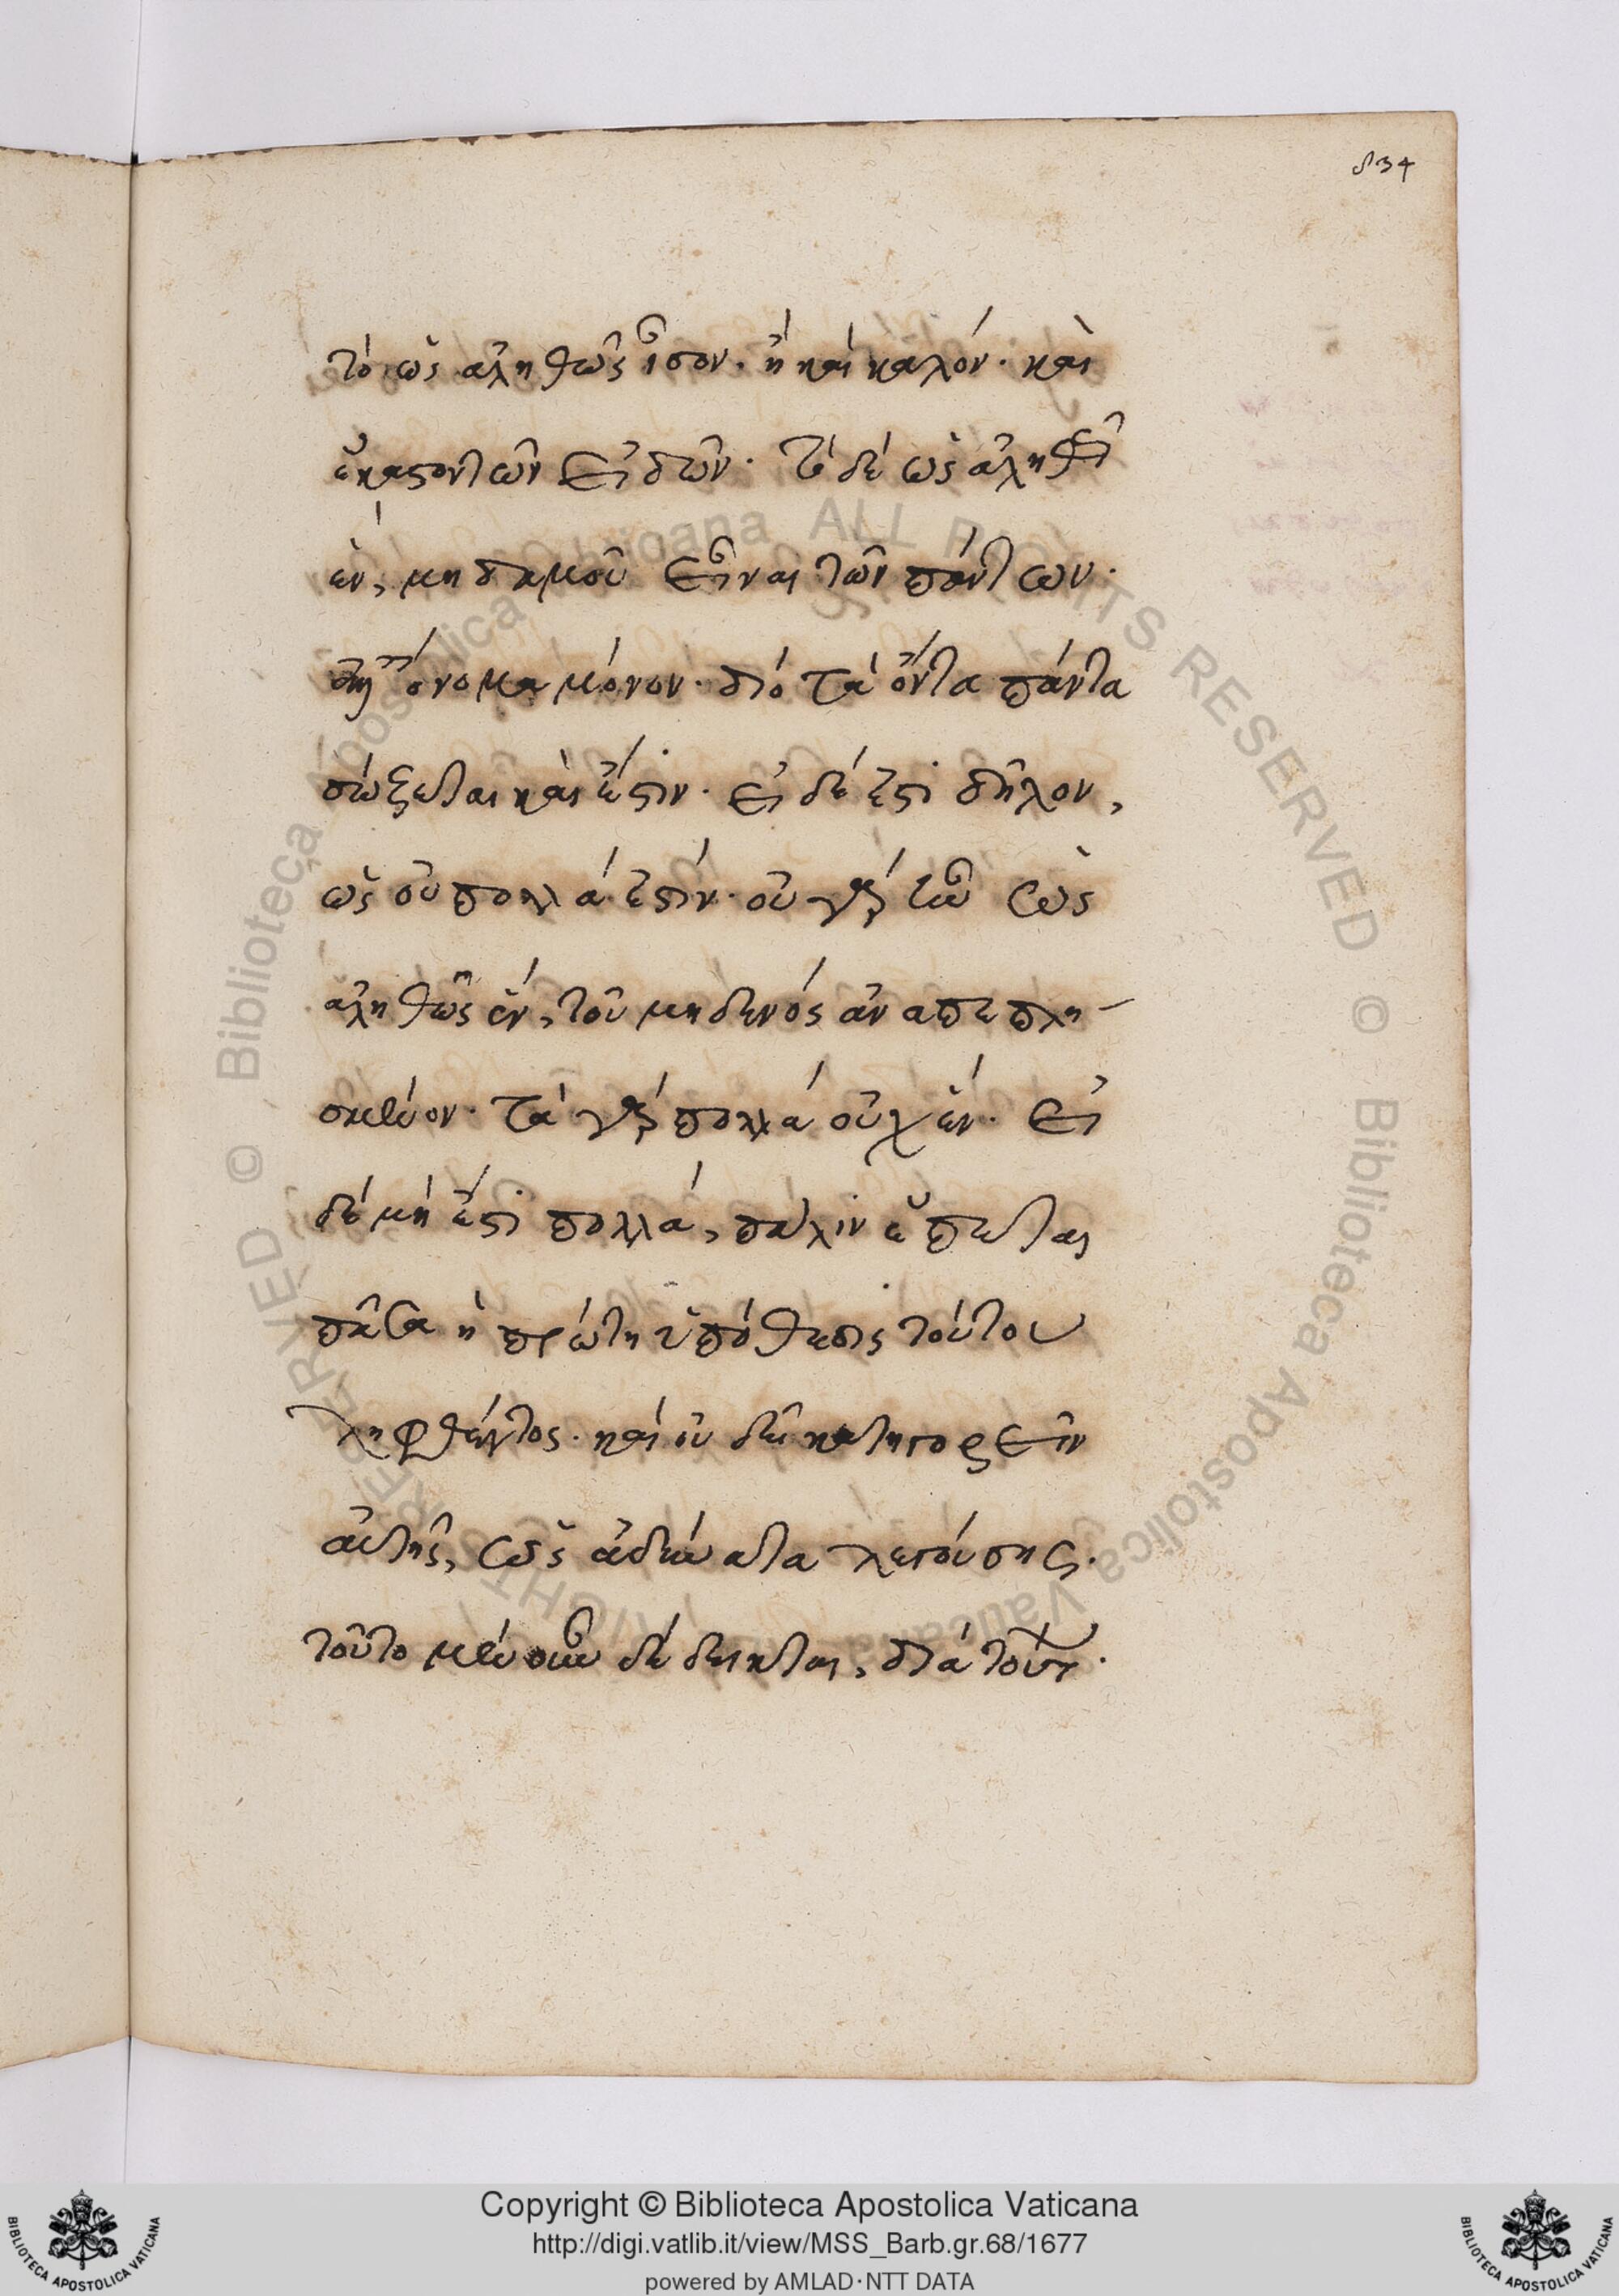 834
τὸ ὡς ἀληθῶς ἴσον. ἢ καὶ καλόν. καὶ
ἕκαστον τῶν εἰδῶν. τὸ δὲ ὡς ἀληθεῖ
ἕν, μηδαμοῦ εἶναι τῶν πάντων.
ὄνομα μόνον. διὸ τὰ ὄντα πάντα
σώζεται καὶ ἔστιν. εἰ δέ ἐστι δῆλον,
ὡς οὐ πολλά ἐστιν. οὐ γὰρ τῶ ὡς
ἀληθῶς ἕν, τοῦ μηδενὸς ἀναπεπλη-
σμένον. τὰ γὰρ πολλὰ οὐχ ἕν. εἰ
δὲ μή ἐστι πολλά, πάλιν ἕπεται
πᾶσα ἡ πρώτη ὑπόθεσις τούτου
ληφθέντος. καὶ οὐ δεῖ κατηγορεῖν
αὐτῆς, ὡς ἀδύνατα λεγούσης.
τοῦτο μὲν οὖν δέδεικται, διὰ
Copyright © Biblioteca Apostolica Vaticana
http://digi.vatlib.it/view/MSS_Barb.gr.68/1677
powered by AMLAD·NTT DATA
BIBLIOTECA APOSTOLICA VATICANA
BIBLIOTECA APOSTOLICA VATICANA